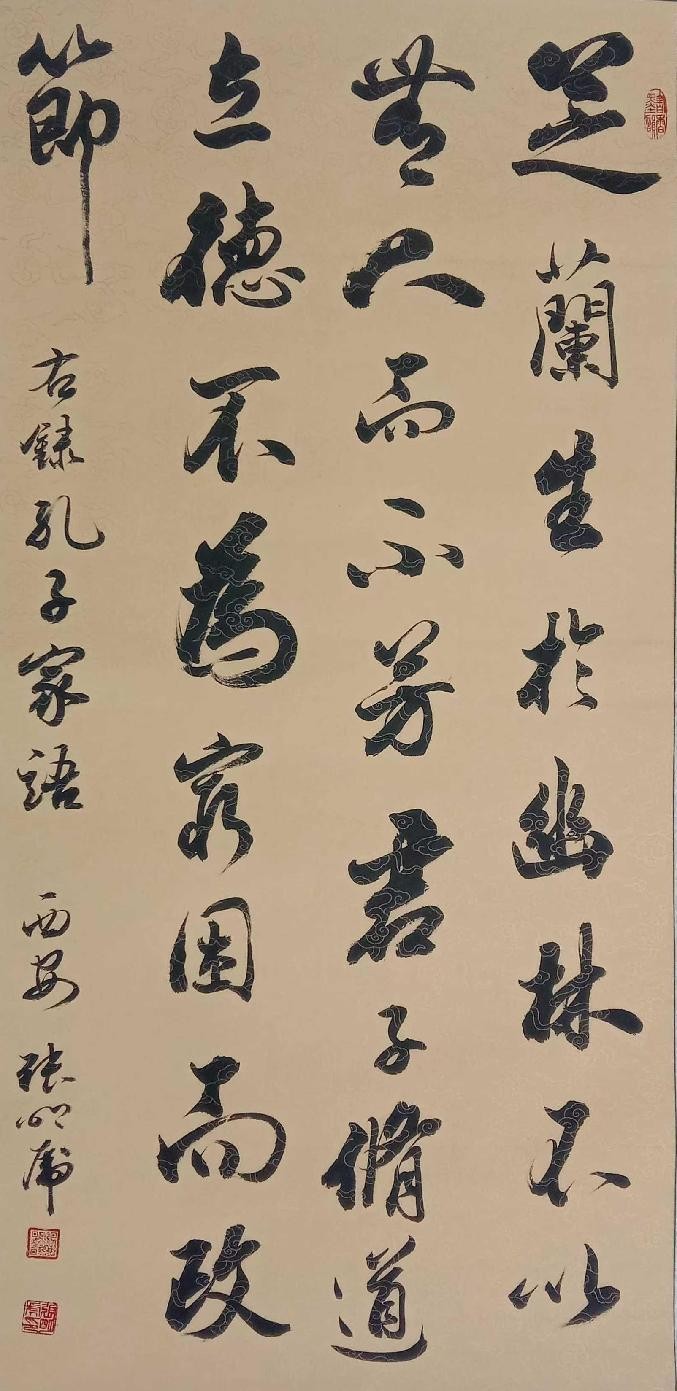 芝蘭生於幽林不以
無人而不芳君子脩道
立德不為窮困而改
節
右錄孔子家語
西安
張明虎